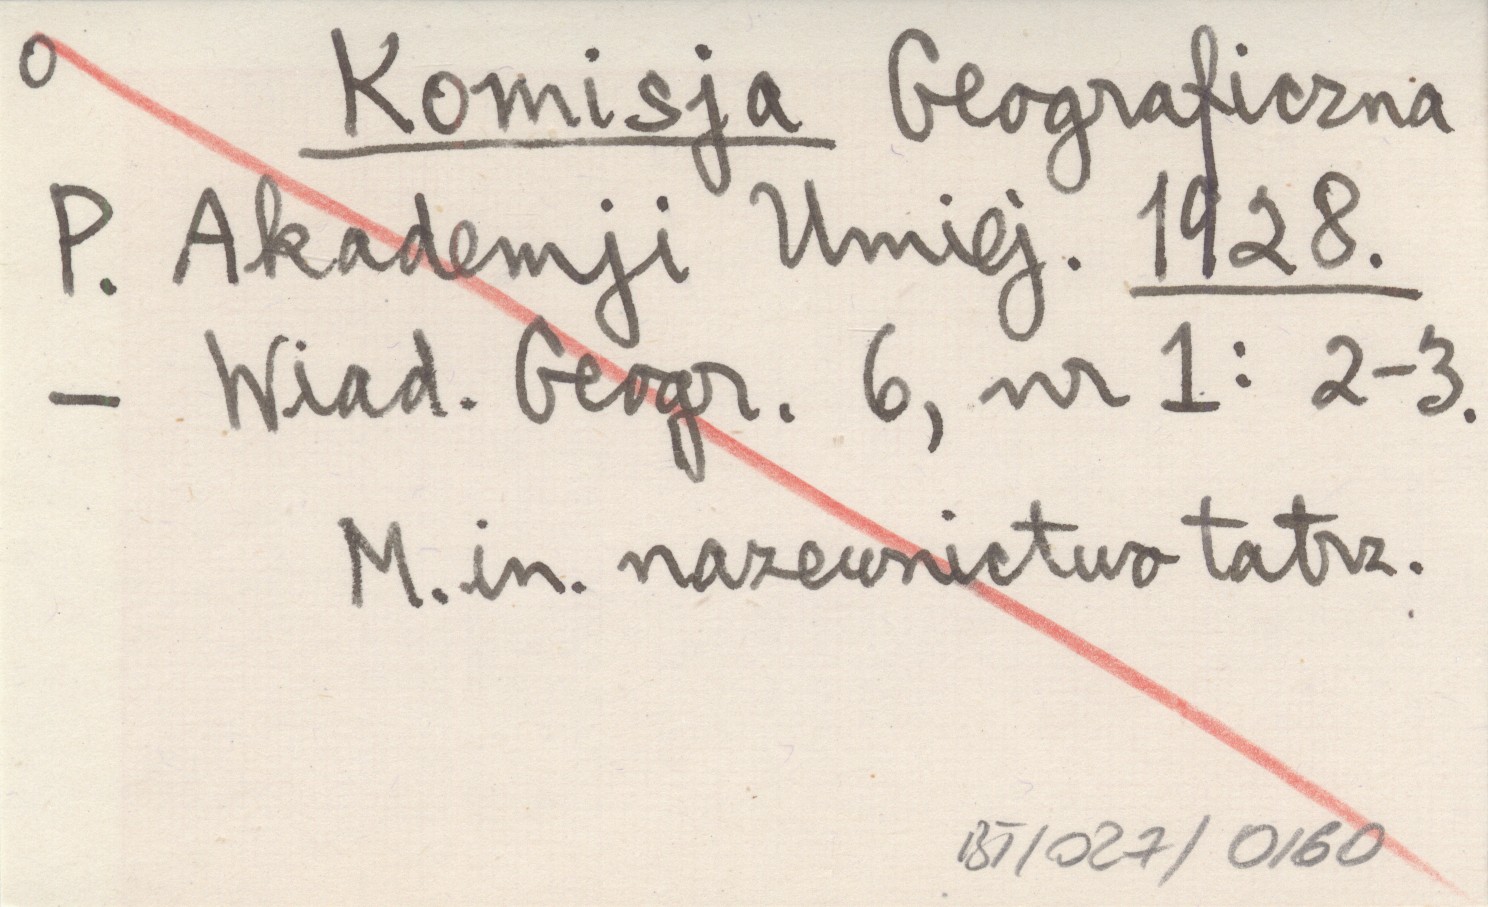 o Komisja Geograficzna
P. Akademji Umiej. 1928.
— Wiad. Geogr. 6, nr 1: 2-3.
M. in. nazewnictwo tatrz.
BT/027/0160